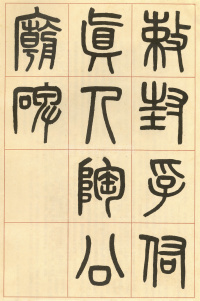 敕封孚佑
真人陶公
廟碑